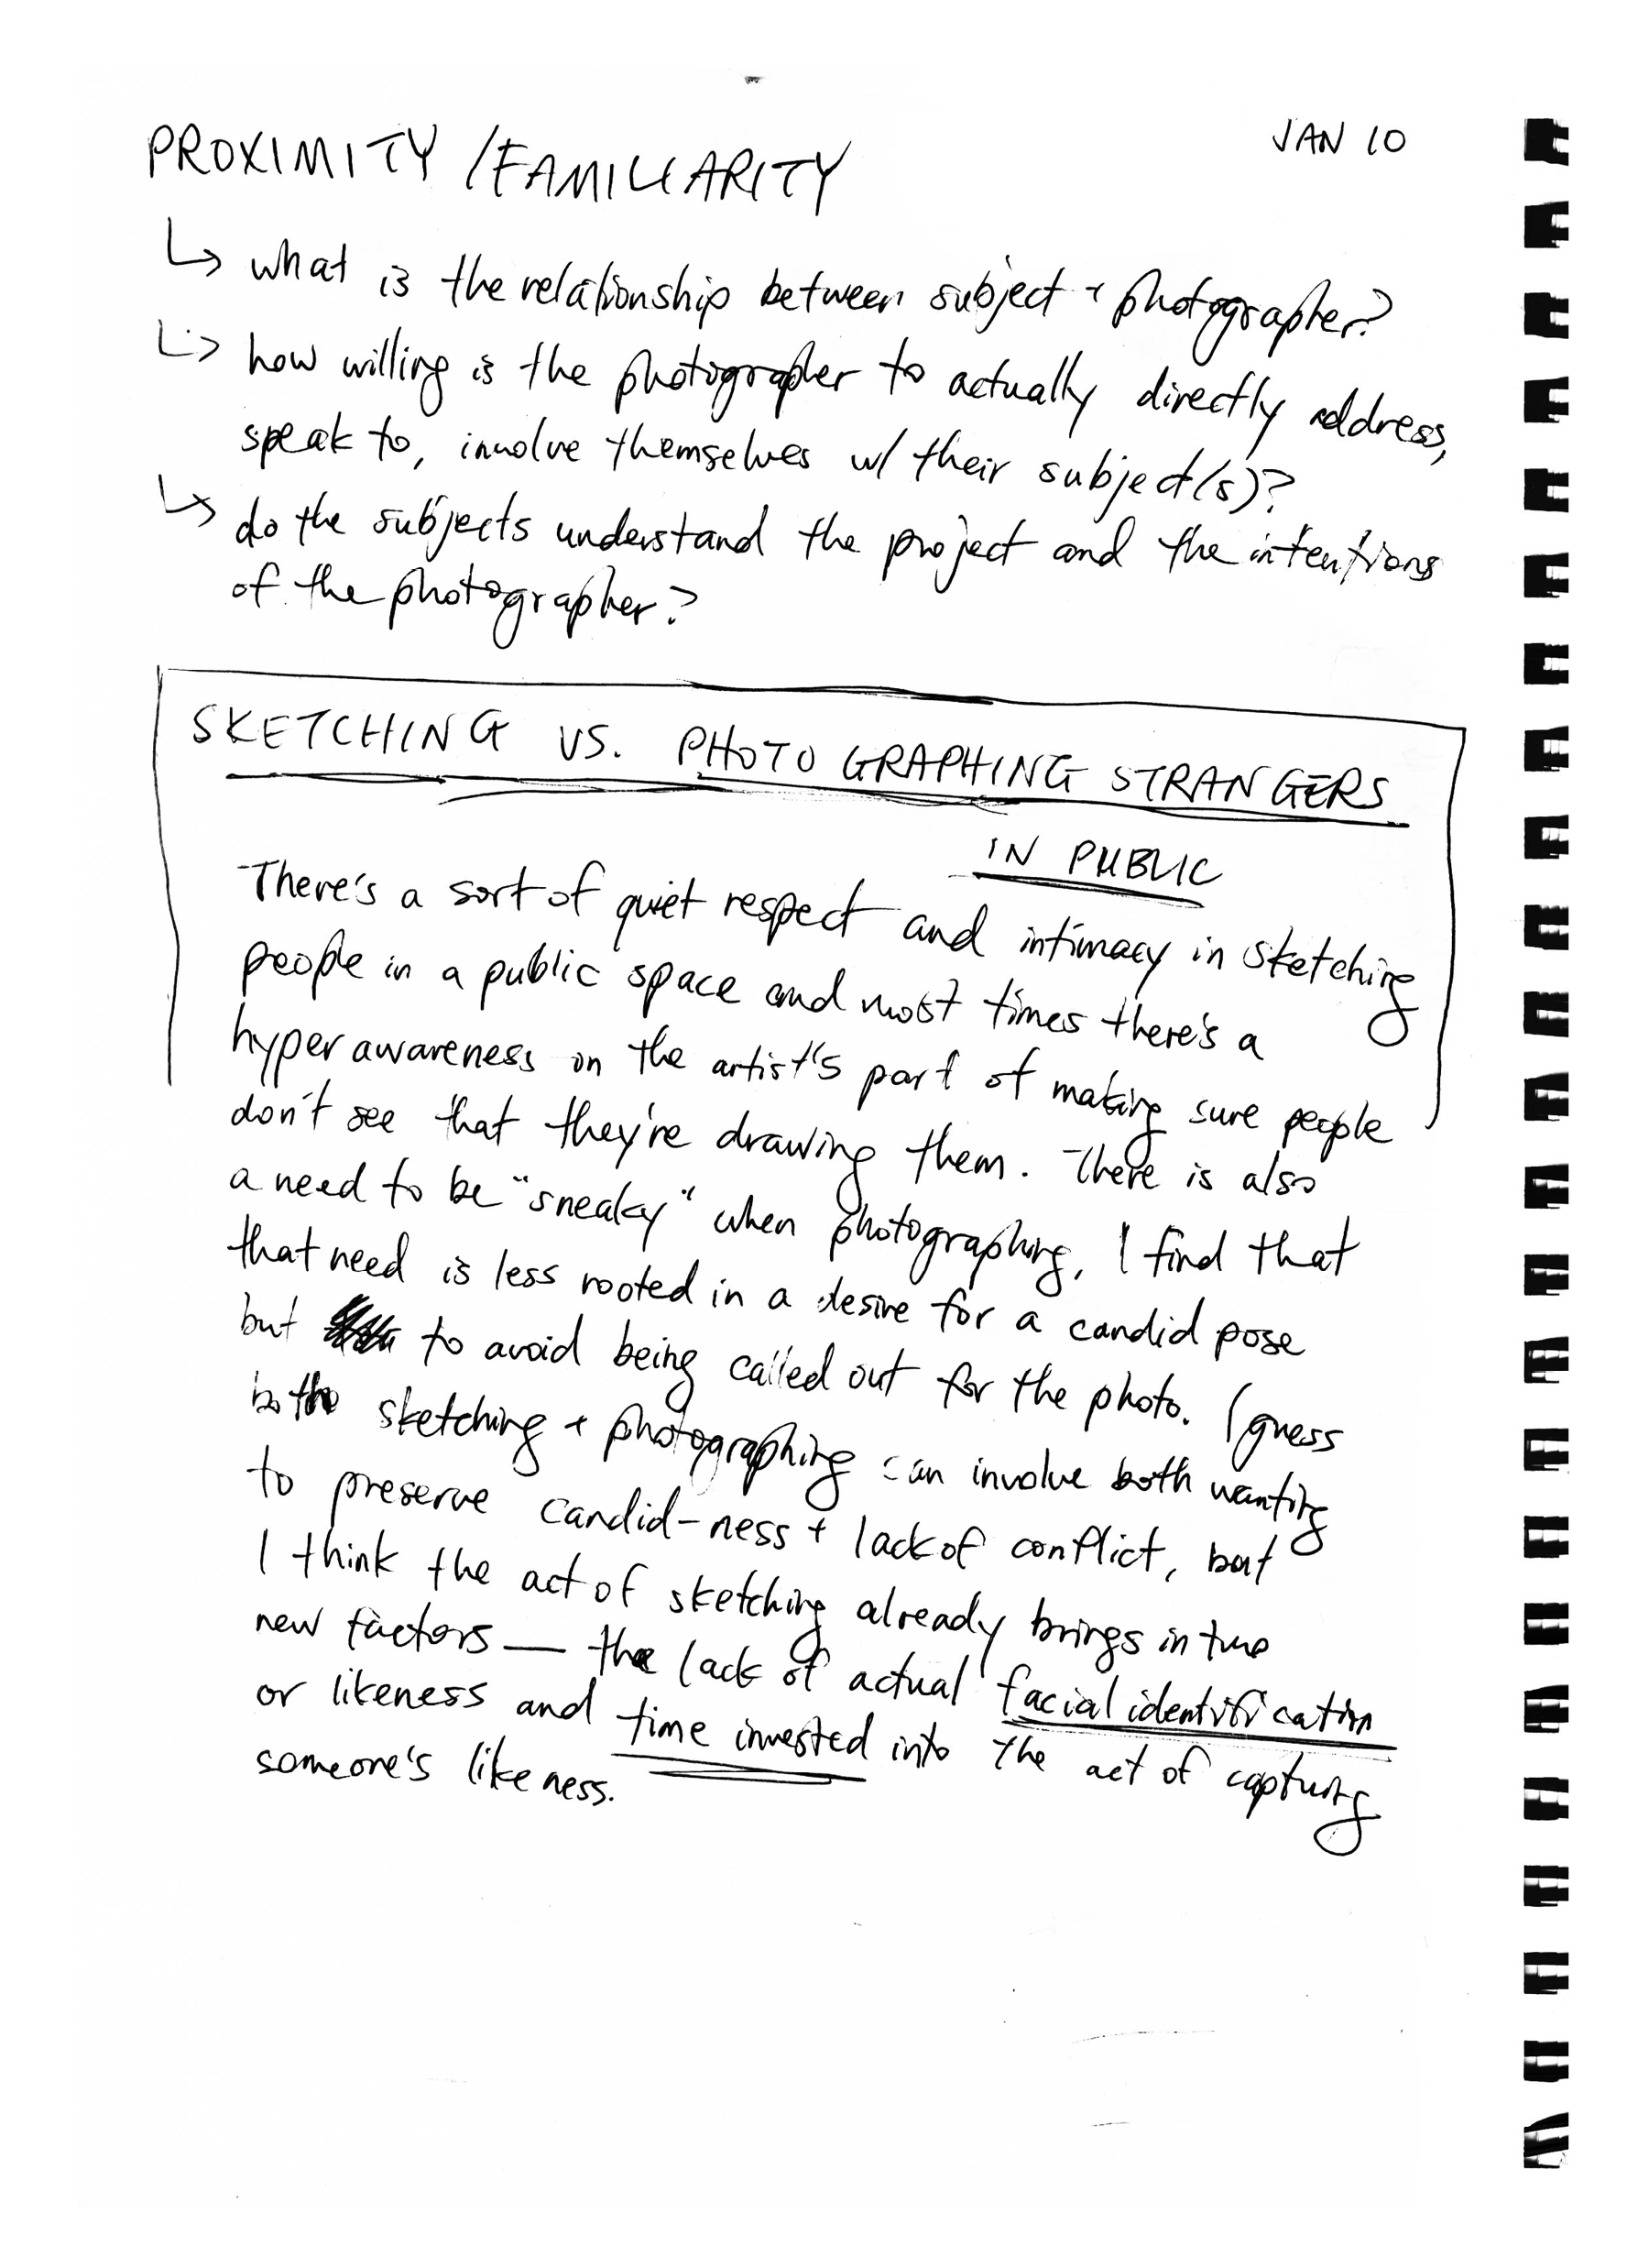 JAN 10
PROXIMITY / FAMILIARITY
↳ what is the relationship between subject + photographer?
↳ how willing is the photographer to actually directly address,
speak to, involve themselves w/ their subject(s)?
↳ do the subjects understand the project and the intentions
of the photographer?
SKETCHING VS. PHOTOGRAPHING STRANGERS
IN PUBLIC
There's a sort of quiet respect and intimacy in sketching
people in a public space and most times there's a
hyper awareness on the artist's part of making sure people
don't see that they're drawing them. There is also
a need to be "sneaky" when photographing, I find that
that need is less rooted in a desire for a candid pose
but to avoid being called out for the photo. I guess
both sketching + photographing can involve both wanting
to preserve candid-ness + lack of conflict, but
I think the act of sketching already brings in two
new factors — the lack of actual facial identification
or likeness and time invested into the act of capturing
someone's likeness.